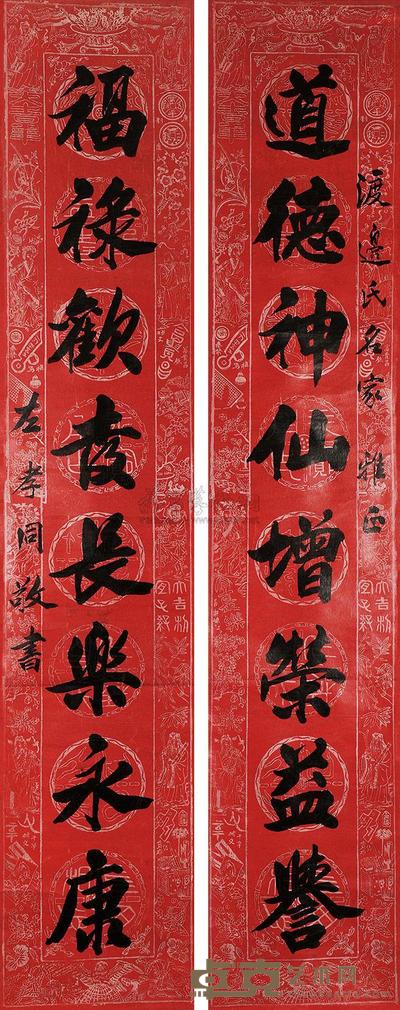 渡邉氏名家雅正
道德神仙增榮益譽
福祿歡喜長樂永康
左孝同敬書